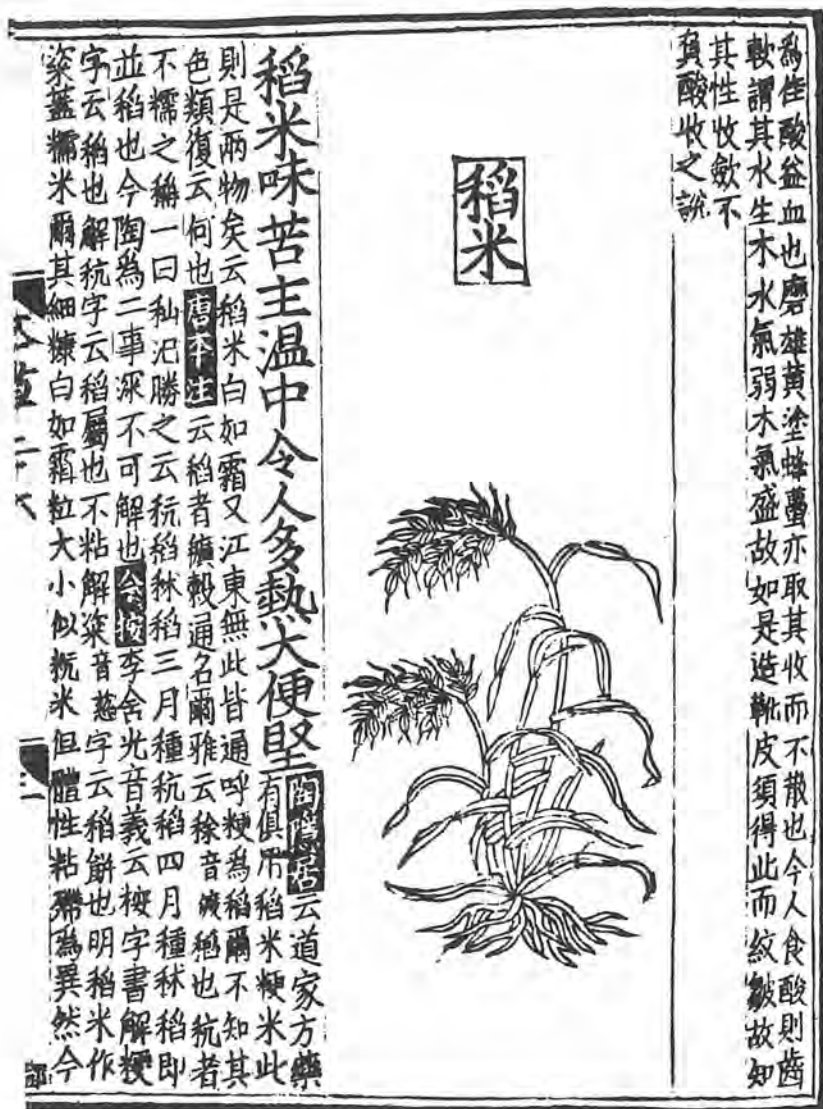 為佳酸益血也磨雄黃塗蜂蠆亦取其收而不散也今人食酸則齒
軟謂其水生木水氣弱木氣盛故如是造靴皮須得此而紋皺故知
其性收斂不
負酸收之說
稻米
稻米味苦主温中令人多熱大便堅
陶隱居云道家方藥
有俱用稻米粳米此
則是兩物矣云稻米白如霜又江東無此皆通呼粳為稻爾不知其
色類復云何也唐本注云稻者穬穀通名爾雅云稌音渡稻也秔者
不糯之稱一曰秈汜勝之云秔稻秫稻三月種秔稻四月種秫稻即
並稻也今陶為二事深不可解也今按李含光音義云按字書解粳
字云稻也解秔字云稻屬也不粘解粢音慈字云稻餅也明稻米作
粢蓋糯米爾其細糠白如霜粒大小似秔米但體性粘殢為異然今
本草二十六
三